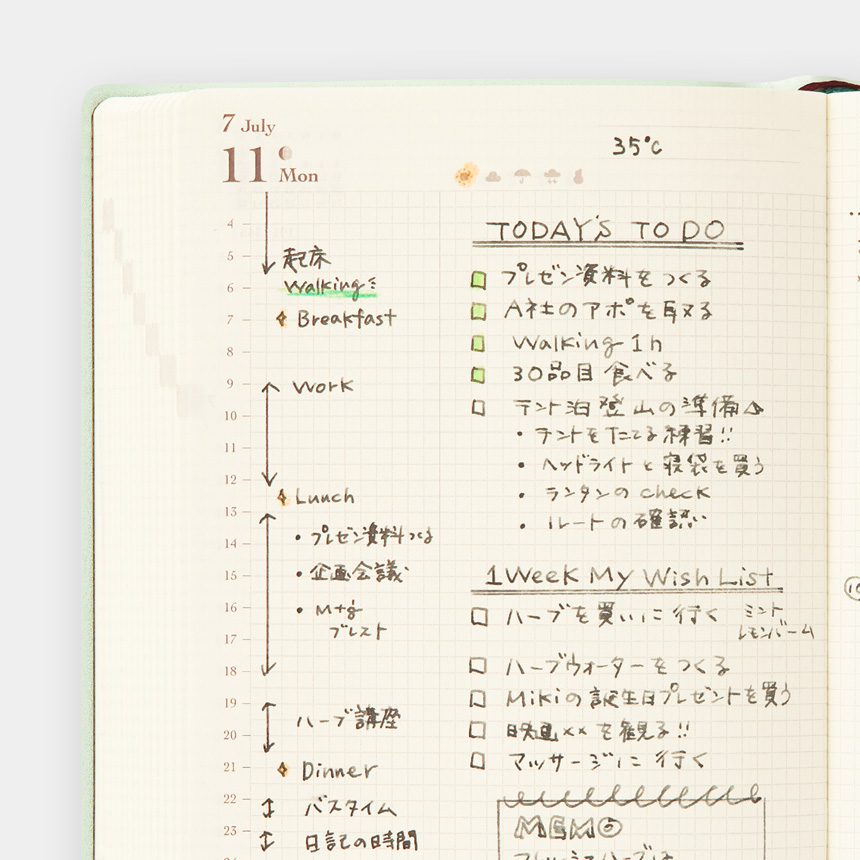 7 July
11 Mon
35℃
4
5 起床
6 Walking
7 Breakfast
8
9 Work
10
11
12
Lunch
13
プレゼン資料つくる
14
15 企画会議
16 Mtg
ブレスト
17
18
19
ハーブ講座
20
21 Dinner
22 バスタイム
23 日記の時間
TODAY'S TO DO
プレゼン資料をつくる
A社のアポを取る
Walking 1h
30品目食べる
テント泊登山の準備
・テントをたてる練習!!
・ヘッドライトと寝袋を買う
・ランタンのcheck
・ルートの確認
1 Week My Wish List
ハーブを買いに行く ミント
レモンバーム
ハーブウォーターをつくる
Mikiの誕生日プレゼントを買う
映画××を観る!!
マッサージに行く
MEMO